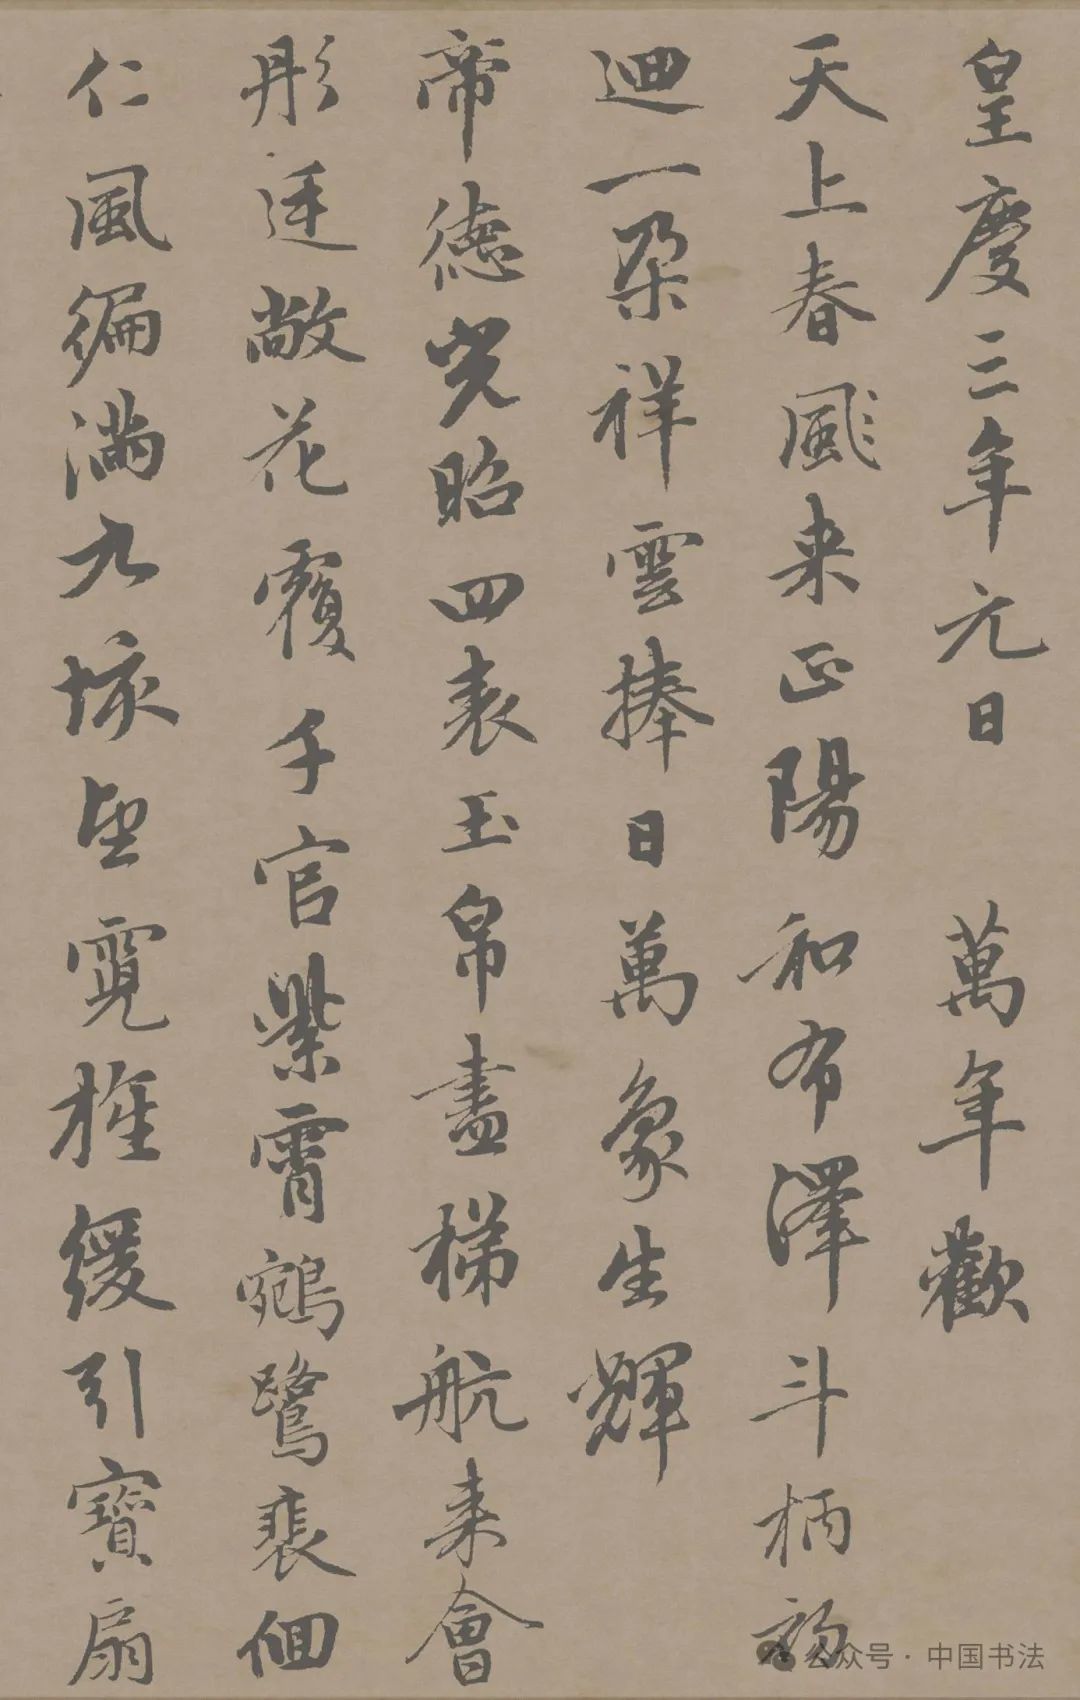 皇慶三年元日　萬年歡
天上春颩来正陽和布澤斗柄初
迴一朶祥雲捧日萬象生輝
帝德光昭四表玉帛盡梯航来會
彤廷敞花覆千官紫霄鵷鷺裴佪
仁風徧滿九垓望霓旌緩引寶扇
公众号·中国书法